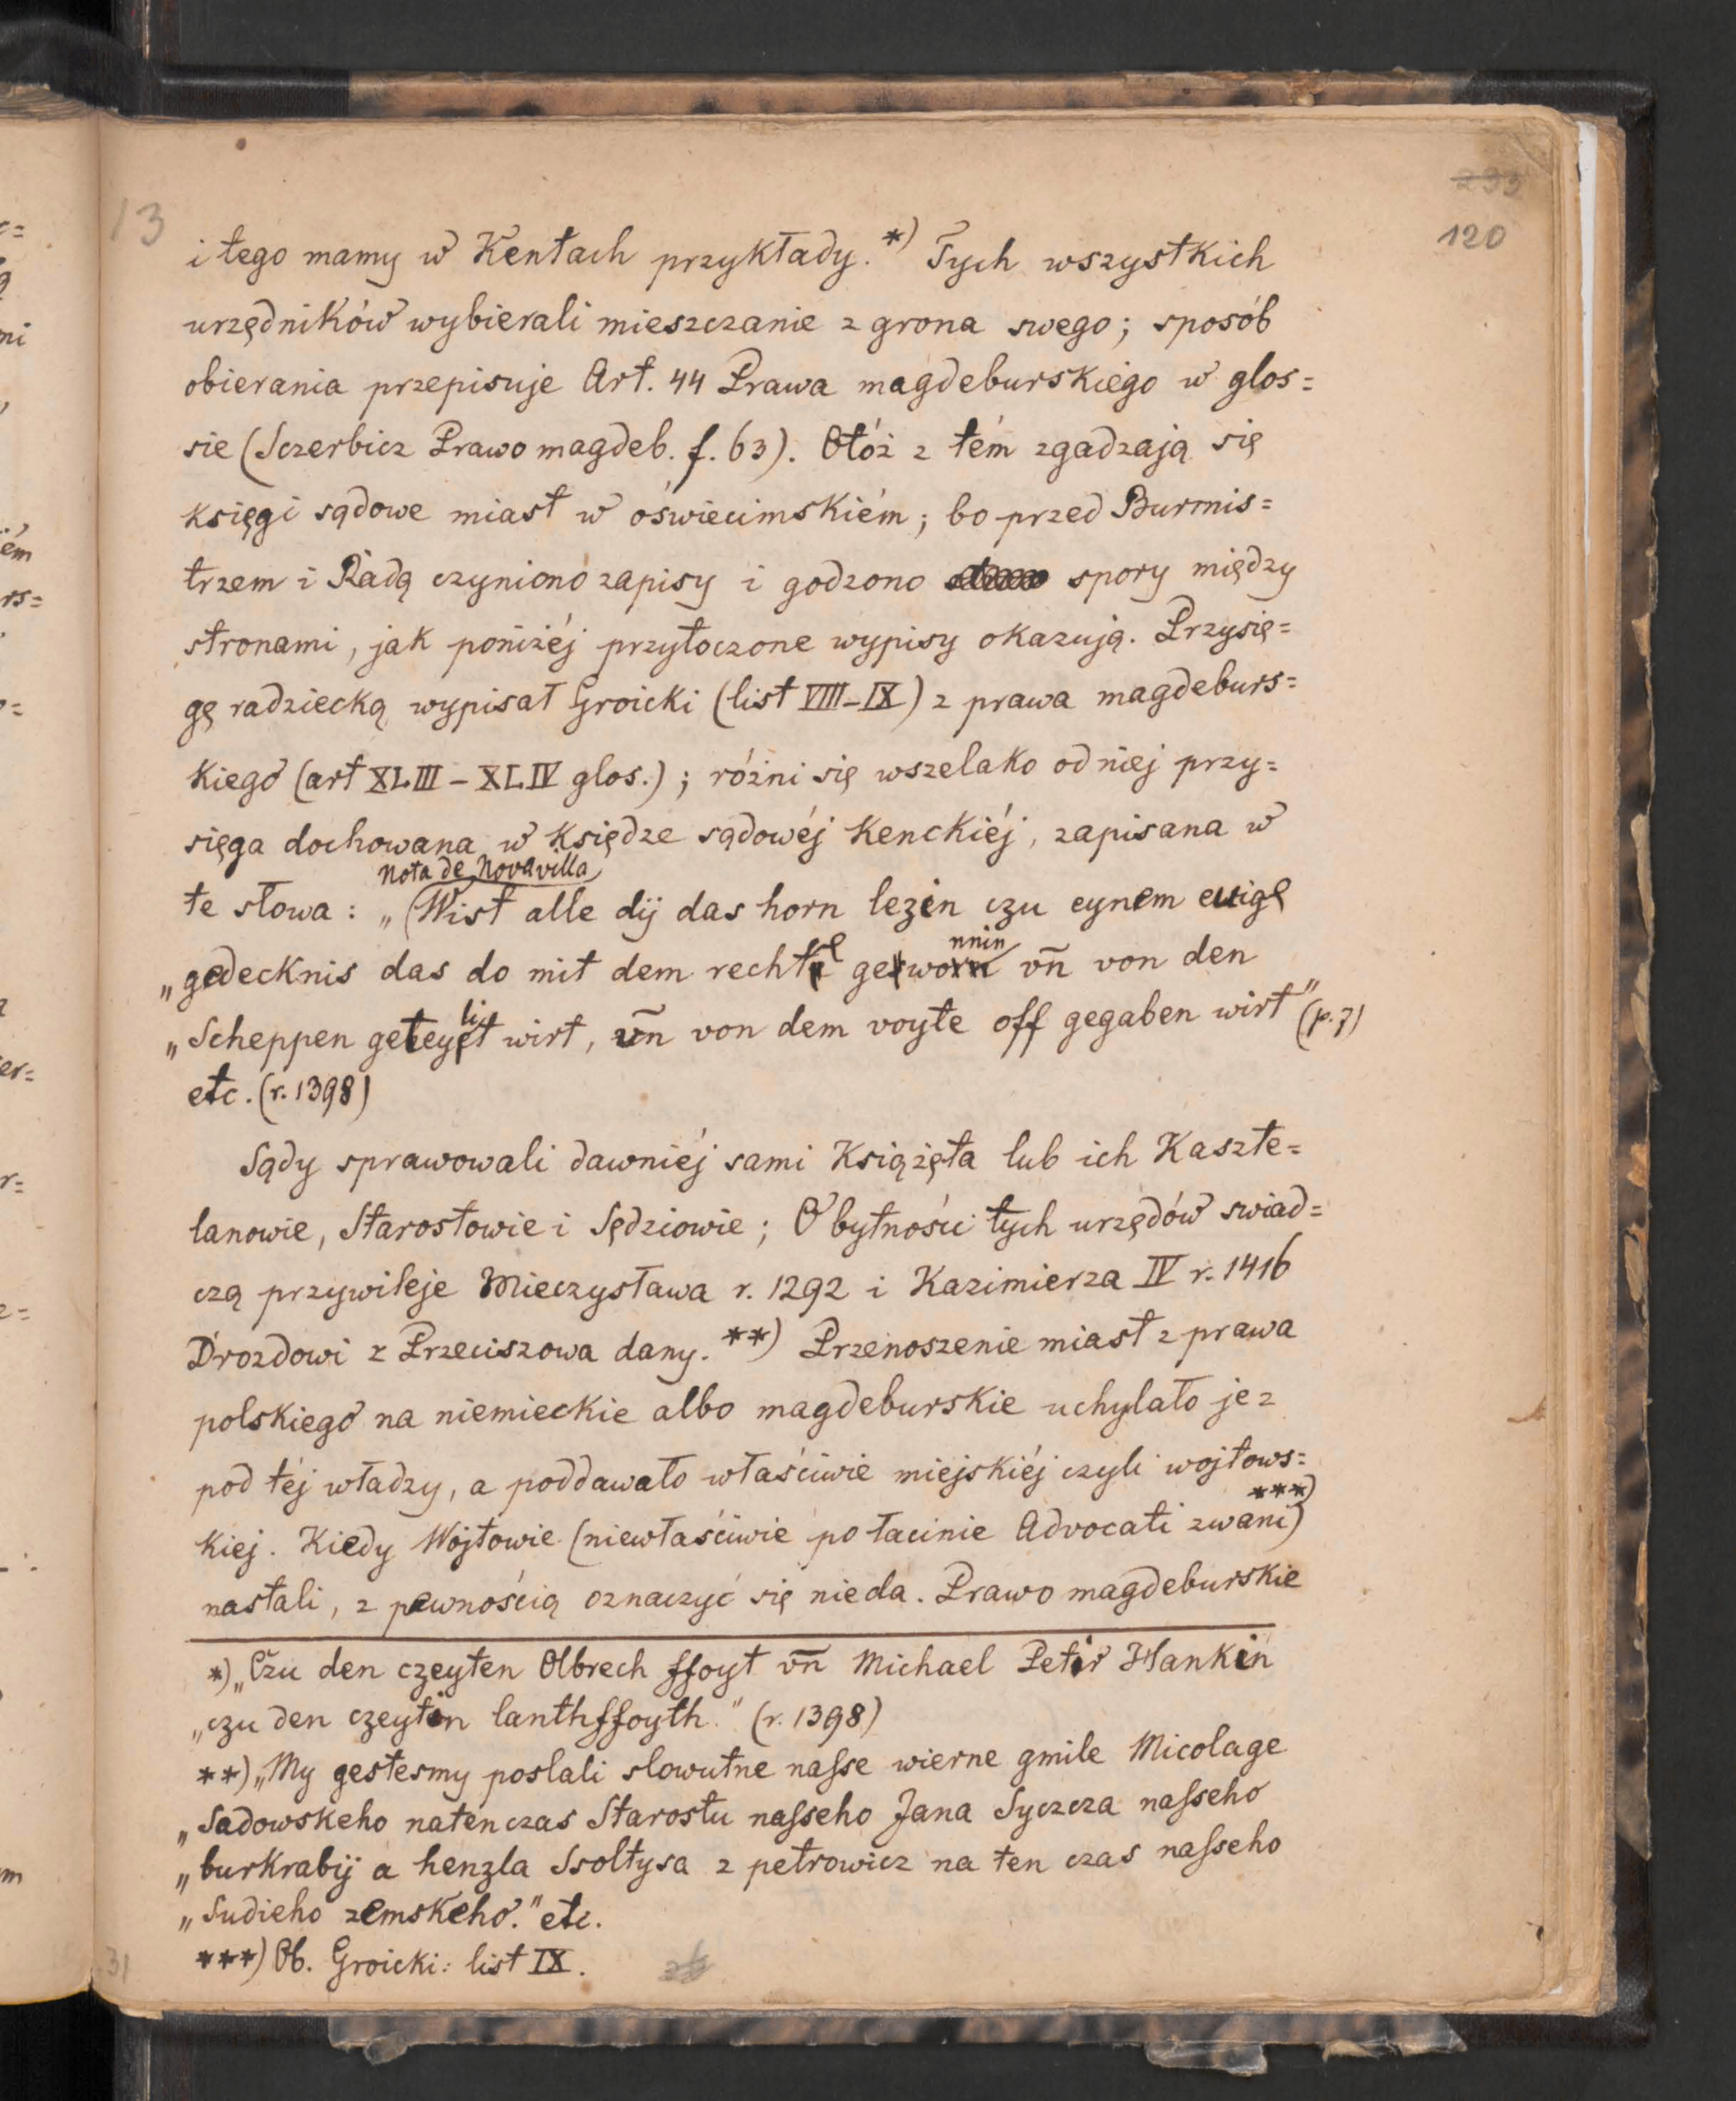 13
120
i tego mamy w Kentach przykłady.*) Tych wszystkich
urzędników wybierali mieszczanie z grona swego; sposób
obierania przepisuje Art. 44 Prawa magdeburskiego w glos=
sie (Sczerbicz Prawo magdeb. f. 63). Otóż z tém zgadzają się
księgi sądowe miast w oświecimskiém; bo przed Burmis=
trzem i Radą czyniono zapisy i godzono spory między
stronami, jak poniżéj przytoczone wypisy okazują. Przysię=
gę radziecką wypisał Groicki (list VIII-IX) z prawa magdeburs=
kiego (art XLIII – XLIV glos.); różni się wszelako od niej przy=
sięga dochowana w księdze sądowéj Kenckiéj, zapisana w
nota de Novavilla
te słowa: „(Wist alle dij das horn lezin czu eynem ewige
„gedecknis das do mit dem rechte gewonnin vn̄ von den
„Scheppen geteylit wirt, vn̄ von dem voyte off gegaben wirt" (p. 7)
etc. (r. 1398)
Sądy sprawowali dawniéj sami Książęta lub ich Kaszte=
lanowie, Starostowie i Sędziowie; O bytności tych urzędów swiad=
czą przywileje Mieczysława r. 1292 i Kazimierza IV r. 1416
Drozdowi z Przeciszowa dany. **) Przenoszenie miast z prawa
polskiego na niemieckie albo magdeburskie uchylało je z
pod téj władzy, a poddawało właściwie miejskiéj czyli wojtows=
kiej. Kiedy Wojtowie (niewłaściwie po łacinie Advocati zwani) ***)
nastali, z pewnością oznaczyć się nieda. Prawo magdeburskie
*) „Czu den czeyten Olbrech ffoyt vn̄ Michael Petir Hankin
„czu den czeytin lanthffoyth." (r. 1398)
**) „My gestesmy poslali slowutne nasse wierne gmile Micolage
„Sadowskeho natenczas Starostu nasseho Jana Syczcza nasseho
„burkrabij a henzla Ssoltysa z petrowicz na ten czas nasseho
„Sudieho zemskeho." etc.
***) Ob. Groicki: list IX.
31